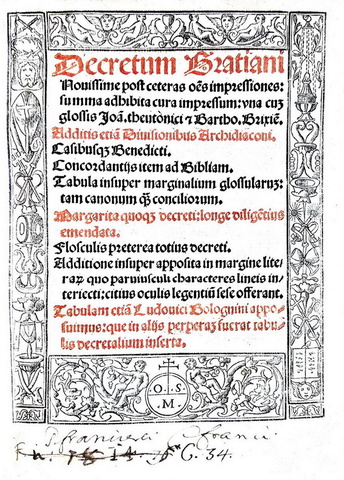 Decretum Gratiani
Nouissime post ceteras oẽs impressiones:
summa adhibita cura impressum: vna cuȝ
glossis Joã. theutonici ⁊ Bartho. Brixiẽ.
Additis etiã Diuisionibus Archidiaconi.
Casibusqȝ Benedicti.
Concordantijs item ad Bibliam.
Tabula insuper marginalium glossularuȝ:
tam canonum q̃ conciliorum.
Margarita quoqȝ decreti: longe diligẽtius
emendata.
Flosculis preterea totius decreti.
Additione insuper apposita in margine lite-
raꝝ quo paruiusculi characteres lineis in-
teriecti: citius oculis legentiũ sese offerant.
Tabulam etiã Ludouici Bolognini appo-
suimus: que in alijs perperaȝ fuerat tabu-
lis decretalium inserta.
O S
M
C. 34.